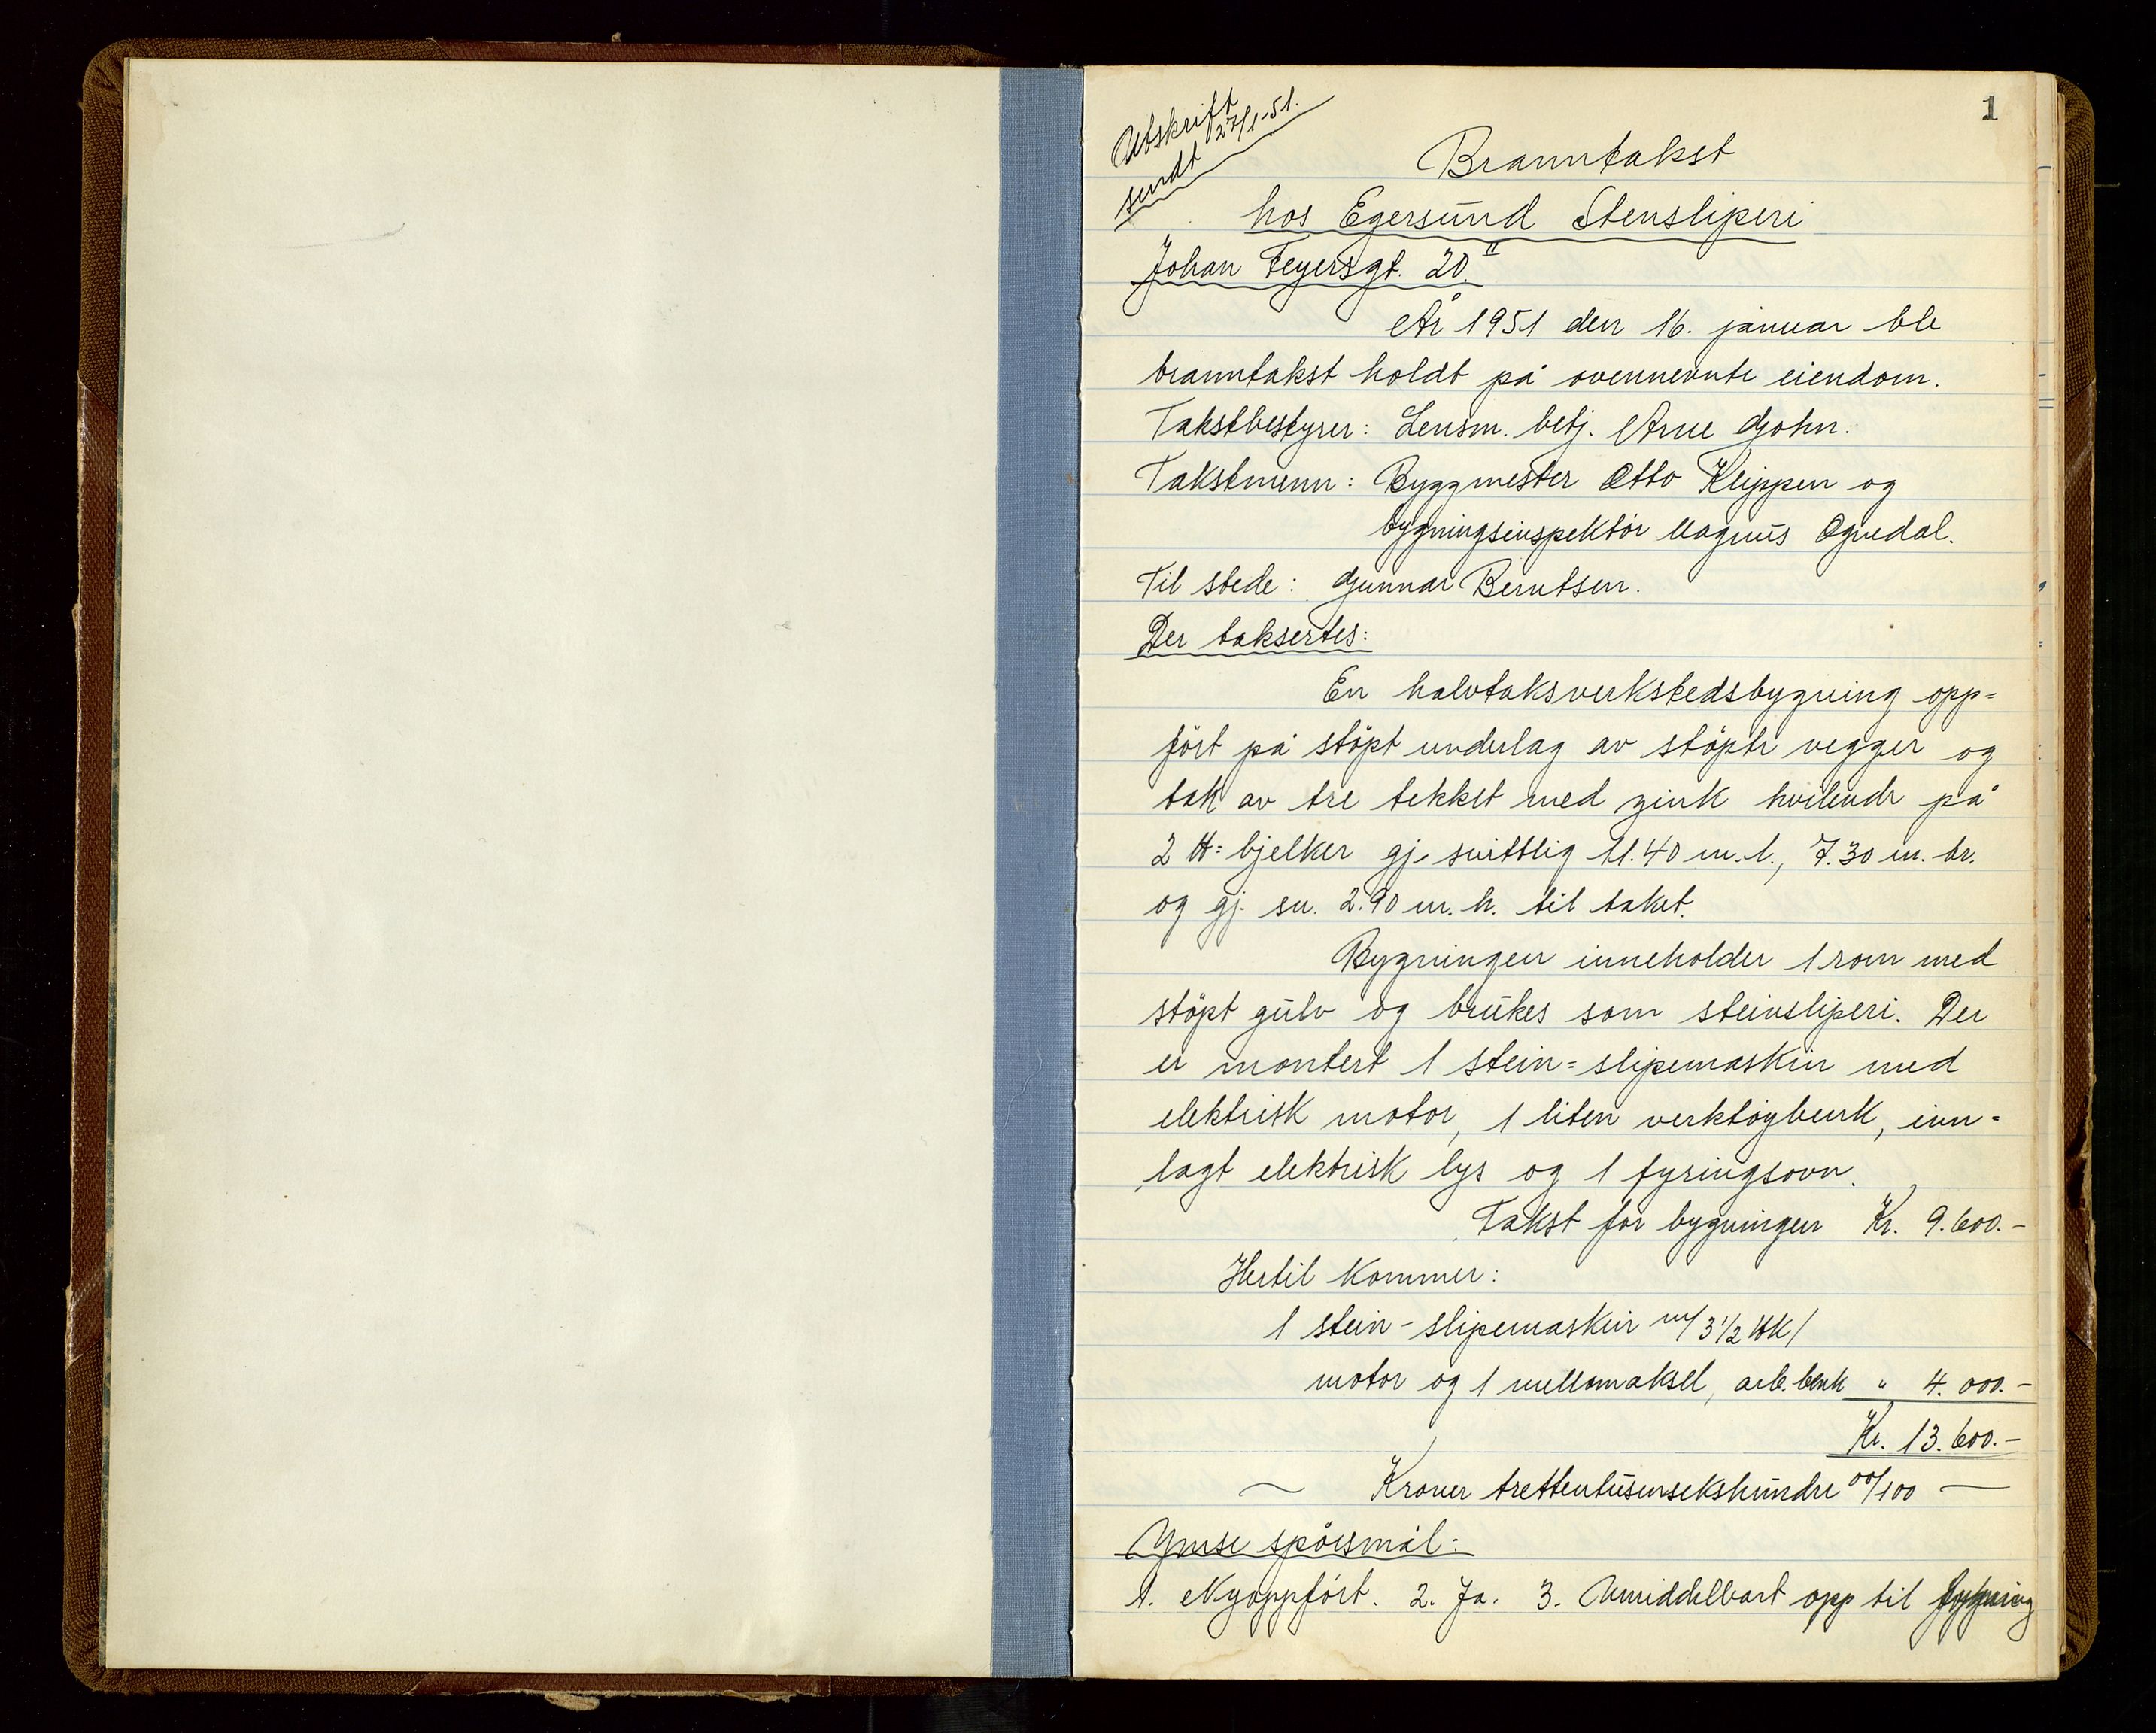 1
Utskrift
sendt 27/1-51.
Branntakst
hos Egersund Stensliperi
Johan Feyersgt. 20.II
År 1951 den 16. januar ble
branntakst holdt på ovennevnte eiendom.
Takstbestyrer: Lensm. betj. Arne Gjohn.
Takstmenn: Byggmester Otto Klippen og
bygningsinspektør Magnus Ognedal.
Til stede: Gunnar Berntsen.
Der taksertes:
En halvtaksverkstedsbygning opp=
ført på støpt underlag av støpte vegger og
tak av tre tekket med zink hvilende på
2 H=bjelker gj. snittlig 11.40 m. l., 7.30 m. br.
og gj. sn. 2.90 m. h. til taket.
Bygningen inneholder 1 rom med
støpt gulv og brukes som steinsliperi. Der
er montert 1 stein=slipemaskin med
elektrisk motor, 1 liten verktøybenk, inn=
lagt elektrisk lys og 1 fyringsovn.
Takst for bygningen Kr. 9.600.-
Hertil kommer:
1 stein-slipemaskin m/ 3 1/2 HK/
motor og 1 mellomaksel, arb.benk " 4.000.-
Kr. 13.600.-
Kroner trettentusensekshundre 00/100
Ymse spørsmål:
1. Nyoppført. 2. Ja. 3. Umiddelbart opp til